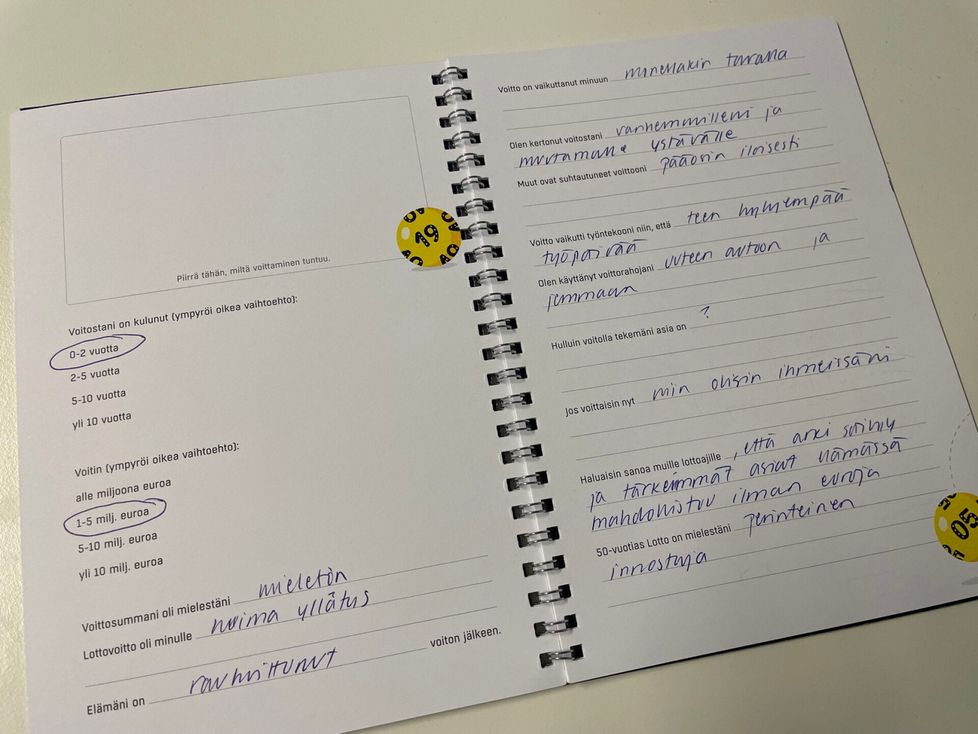 19
Piirrä tähän, miltä voittaminen tuntuu.
Voitostani on kulunut (ympyröi oikea vaihtoehto):
0-2 vuotta
2-5 vuotta
5-10 vuotta
yli 10 vuotta
Voitin (ympyröi oikea vaihtoehto):
alle miljoona euroa
1-5 milj. euroa
5-10 milj. euroa
yli 10 milj. euroa
Voittosummani oli mielestäni mieletön
Lottovoitto oli minulle huima yllätys
Elämäni on rauhoittunut voiton jälkeen.
Voitto on vaikuttanut minuun tavalla
Olen kertonut voitostani vanhemmilleni ja
muutamalle ystävälle
Muut ovat suhtautuneet voittooni pääosin iloisesti
Voitto vaikutti työntekooni niin, että teen lyhyempää
työpäivää
Olen käyttänyt voittorahojani uuteen autoon ja
jemmaan
Hulluin voitolla tekemäni asia on ?
Jos voittaisin nyt niin olisin ihmeissäni
Haluaisin sanoa muille lottoajille , että arki säilyy
ja tärkeimmät asiat elämässä
mahdollistuu ilman euroja
50-vuotias Lotto on mielestäni perinteinen
innostaja
05